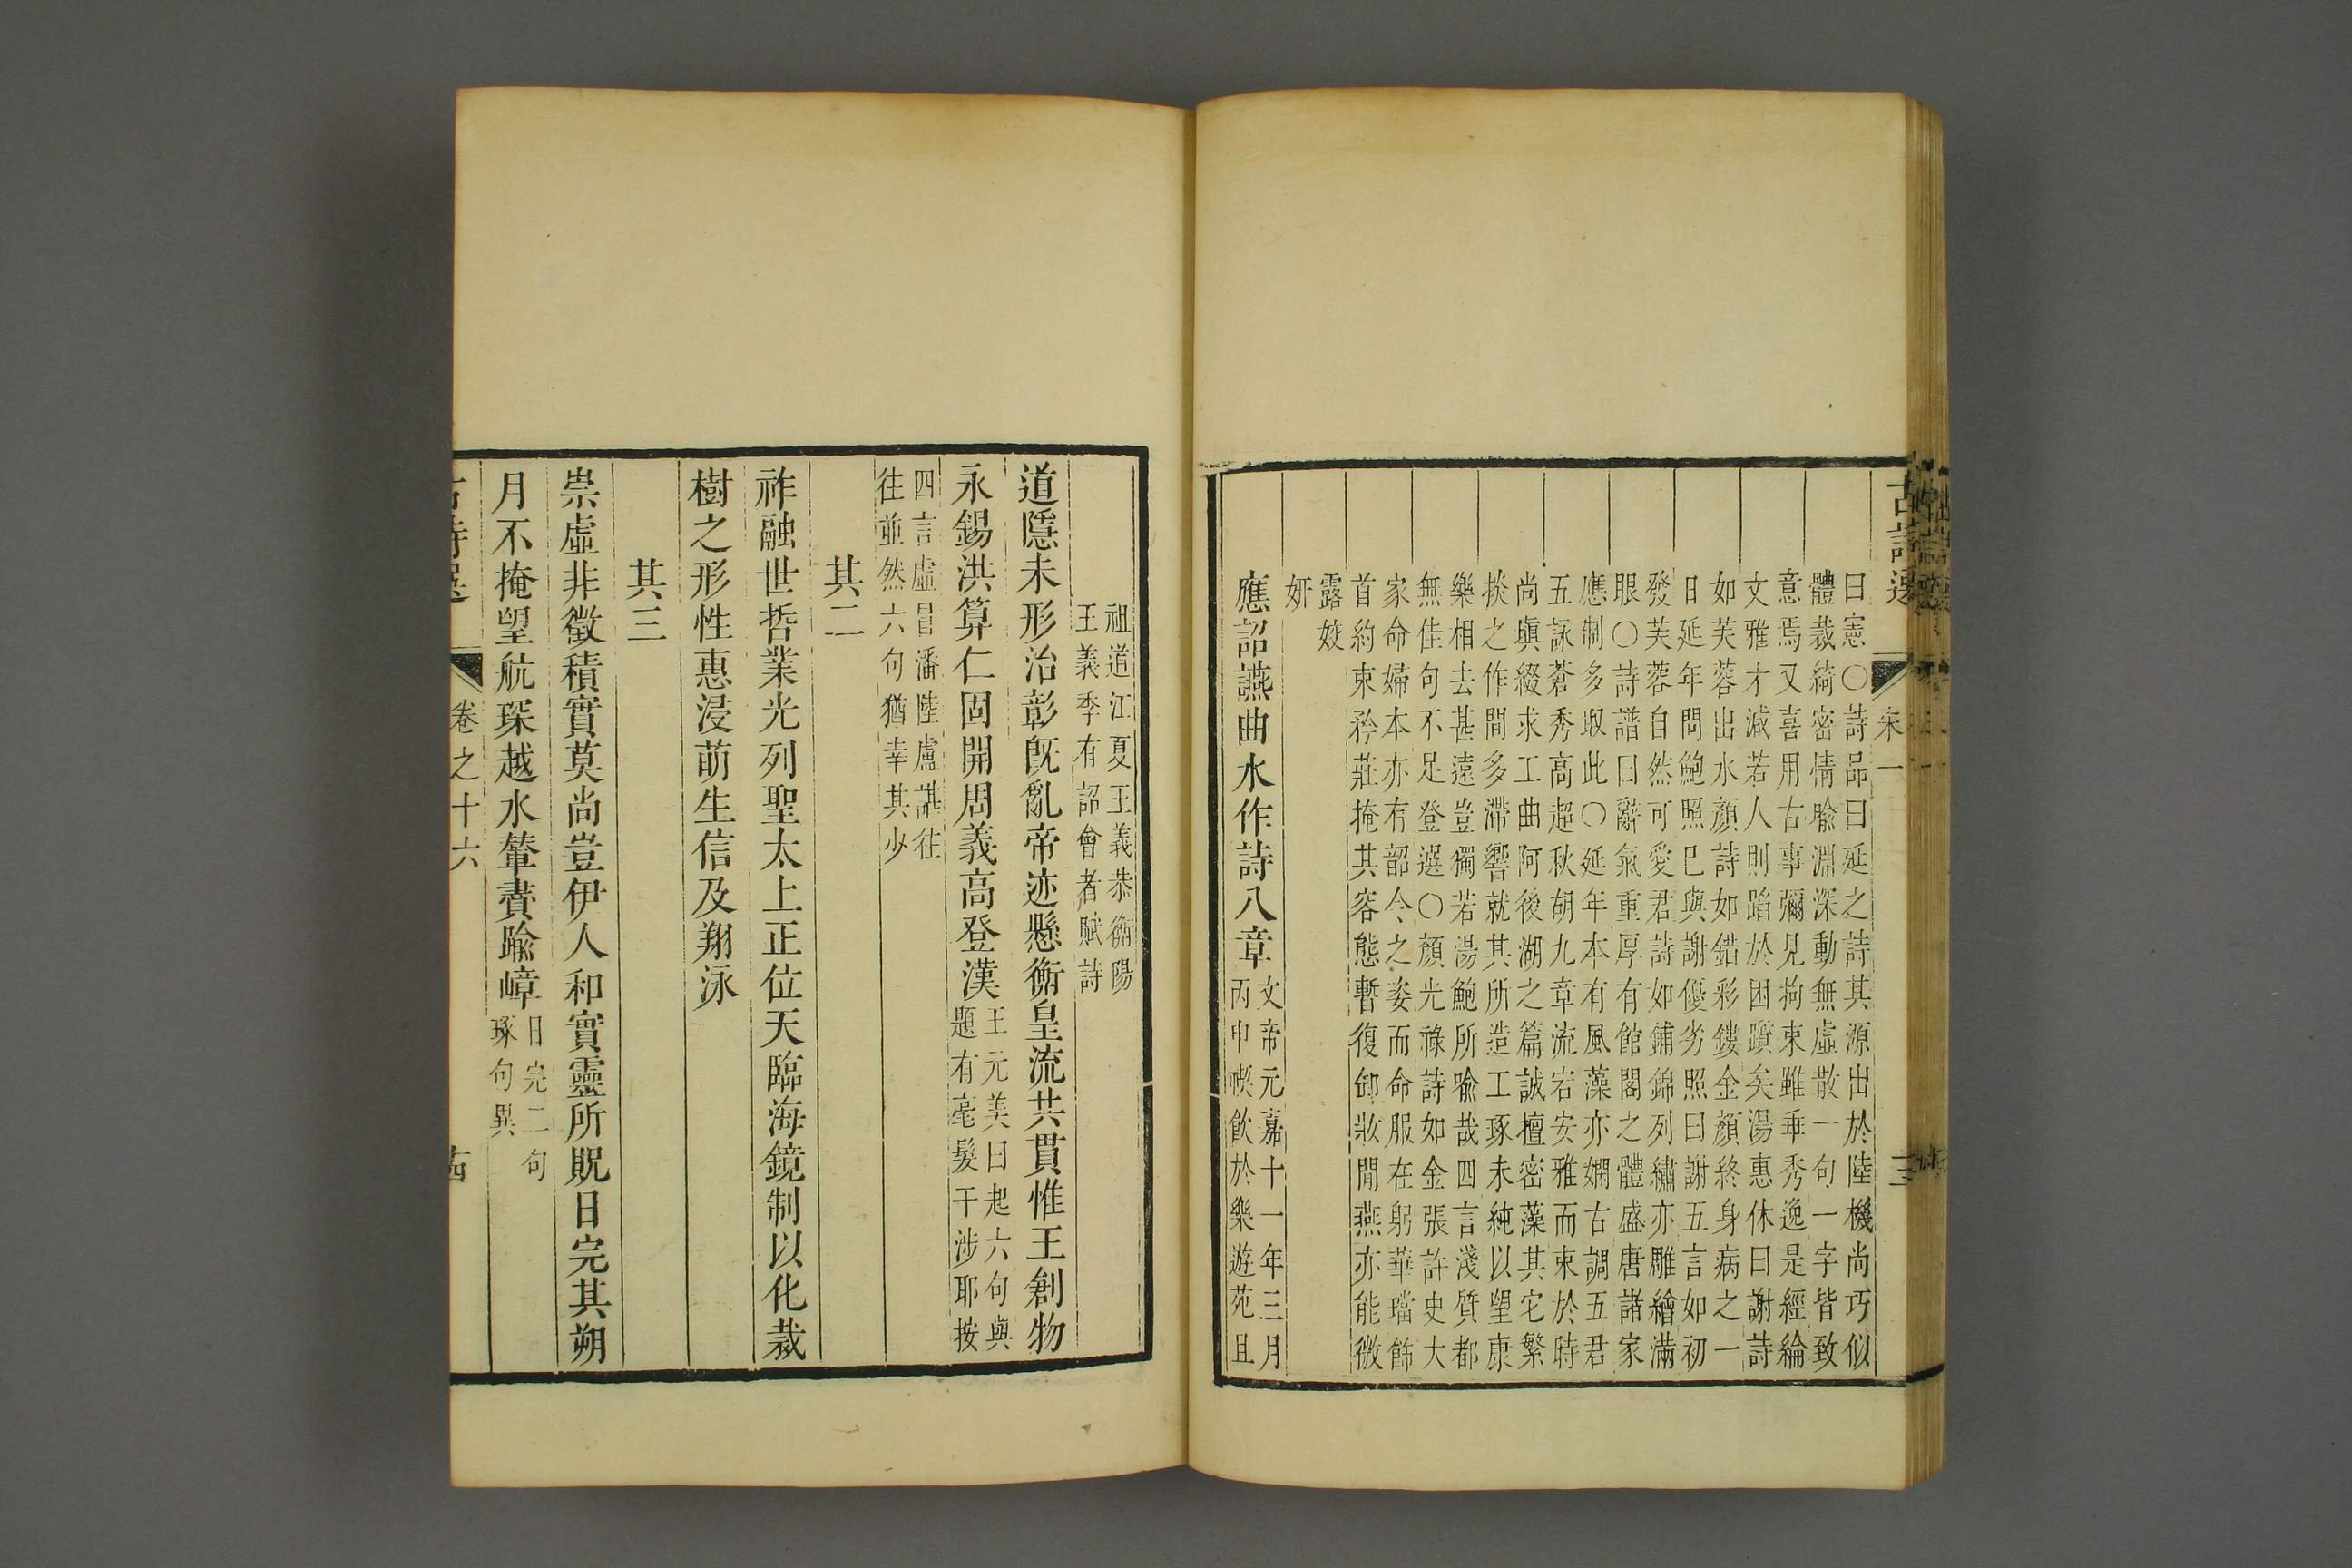 古詩選
宋一
曰憲○詩品曰延之詩其源出於陸機尚巧似
體裁綺密情喻淵深動無虛散一句一字皆致
意焉又喜用古事彌見拘束雖乖秀逸是經綸
文雅才減若人則蹈於困躓矣湯惠休曰謝詩
如芙蓉出水顏詩如錯彩鏤金顏終身病之一
日延年問鮑照已與謝優劣照曰謝五言如初
發芙蓉自然可愛君詩如鋪錦列繡亦雕繪滿
眼○詩譜曰辭氣重厚有館閣之體盛唐諸家
應制多取此○延年本有風藻亦嫻古調五君
五詠蒼秀高超秋胡九章流宕安雅而束於時
尚塡綴求工曲阿後湖之篇誠檀密藻其它繁
掞之作間多滯響就其所造工琢未純以望康
樂相去甚遠豈獨若湯鮑所喻哉四言淺質都
無佳句不足登選○顏光祿詩如金張許史大
家命婦本亦有韶令之姿而命服在躬華璫飾
首約束矜莊掩其容態暫復卸妝閒燕亦能微
露妓
妍
應詔讌曲水作詩八章
文帝元嘉十一年三月
丙申禊飮於樂遊苑且
祖道江夏王義恭衡陽
王義季有詔會者賦詩
道隱未形治彰旣亂帝迹懸衡皇流共貫惟王創物
永錫洪算仁固開周義高登漢
王元美曰起六句與
題有毫髮干涉耶按
四言虛冒潘陸盧諶往
往並然六句猶幸其少
其二
祚融世哲業光列聖太上正位天臨海鏡制以化裁
樹之形性惠浸萌生信及翔泳
其三
崇虛非徵積實莫尚豈伊人和實靈所貺日完其朔
月不掩望航琛越水輦賮踰嶂
日完二句
琢句異
卷之十六